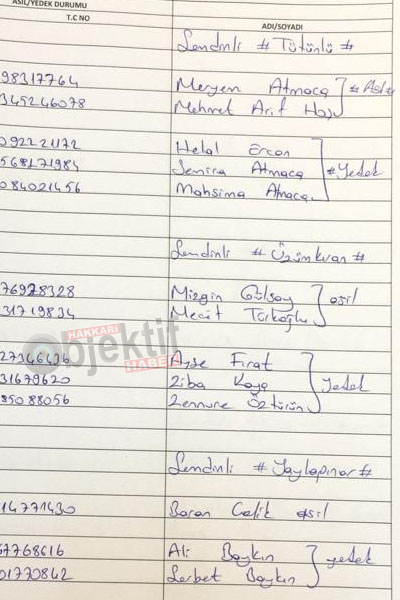 ASİL/YEDEK DURUMU
T.C NO ADI/SOYADI
Şemdinli # Tütünlü #
98317764 Meryem Atmaca # Asil #
345246078 Mehmet Arif
092221172 Helal Ercan
568171984 Semira Atmaca # Yedek
084021456 Mahsima Atmaca
Şemdinli # Üzümkıran #
76928328 Mizgin Gülsoy asil
31719834 Mecit Türkoğlu
HAKKARİ
Objektif
HABER
27346436 Ayşe Fırat
31679620 Ziba Kaya yedek
85088056 Zennure Öztürün
Şemdinli # Yaylapınar #
14771430 Baran Çelik asil
67768616 Ali Baykın yedek
01770842 Serbet Baykın